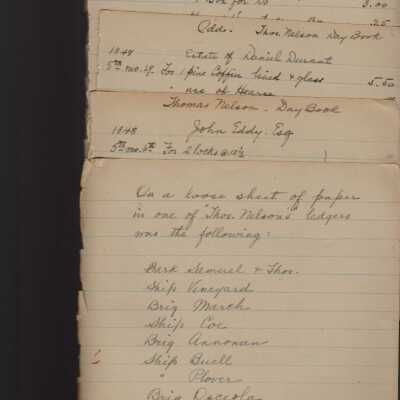 3.00
.25
Odds. Thos. Nelson Day Book
1848 Estate of Daniel Durant
5th mo. 4. For 1 pine Coffin lined & glass 5.50
" use of Hearse
Thomas Nelson - Day Book
1848 John Eddy. Esq
5th mo. 5th For 2 locks @ 12½
On a loose sheet of paper
in one of "Thos. Nelson's" ledgers
was the following:
Bark Samuel & Thos.
Ship Vineyard
Brig March
Ship Coe
Brig Annonan
Ship Buell
" Plover
Brig Osceola